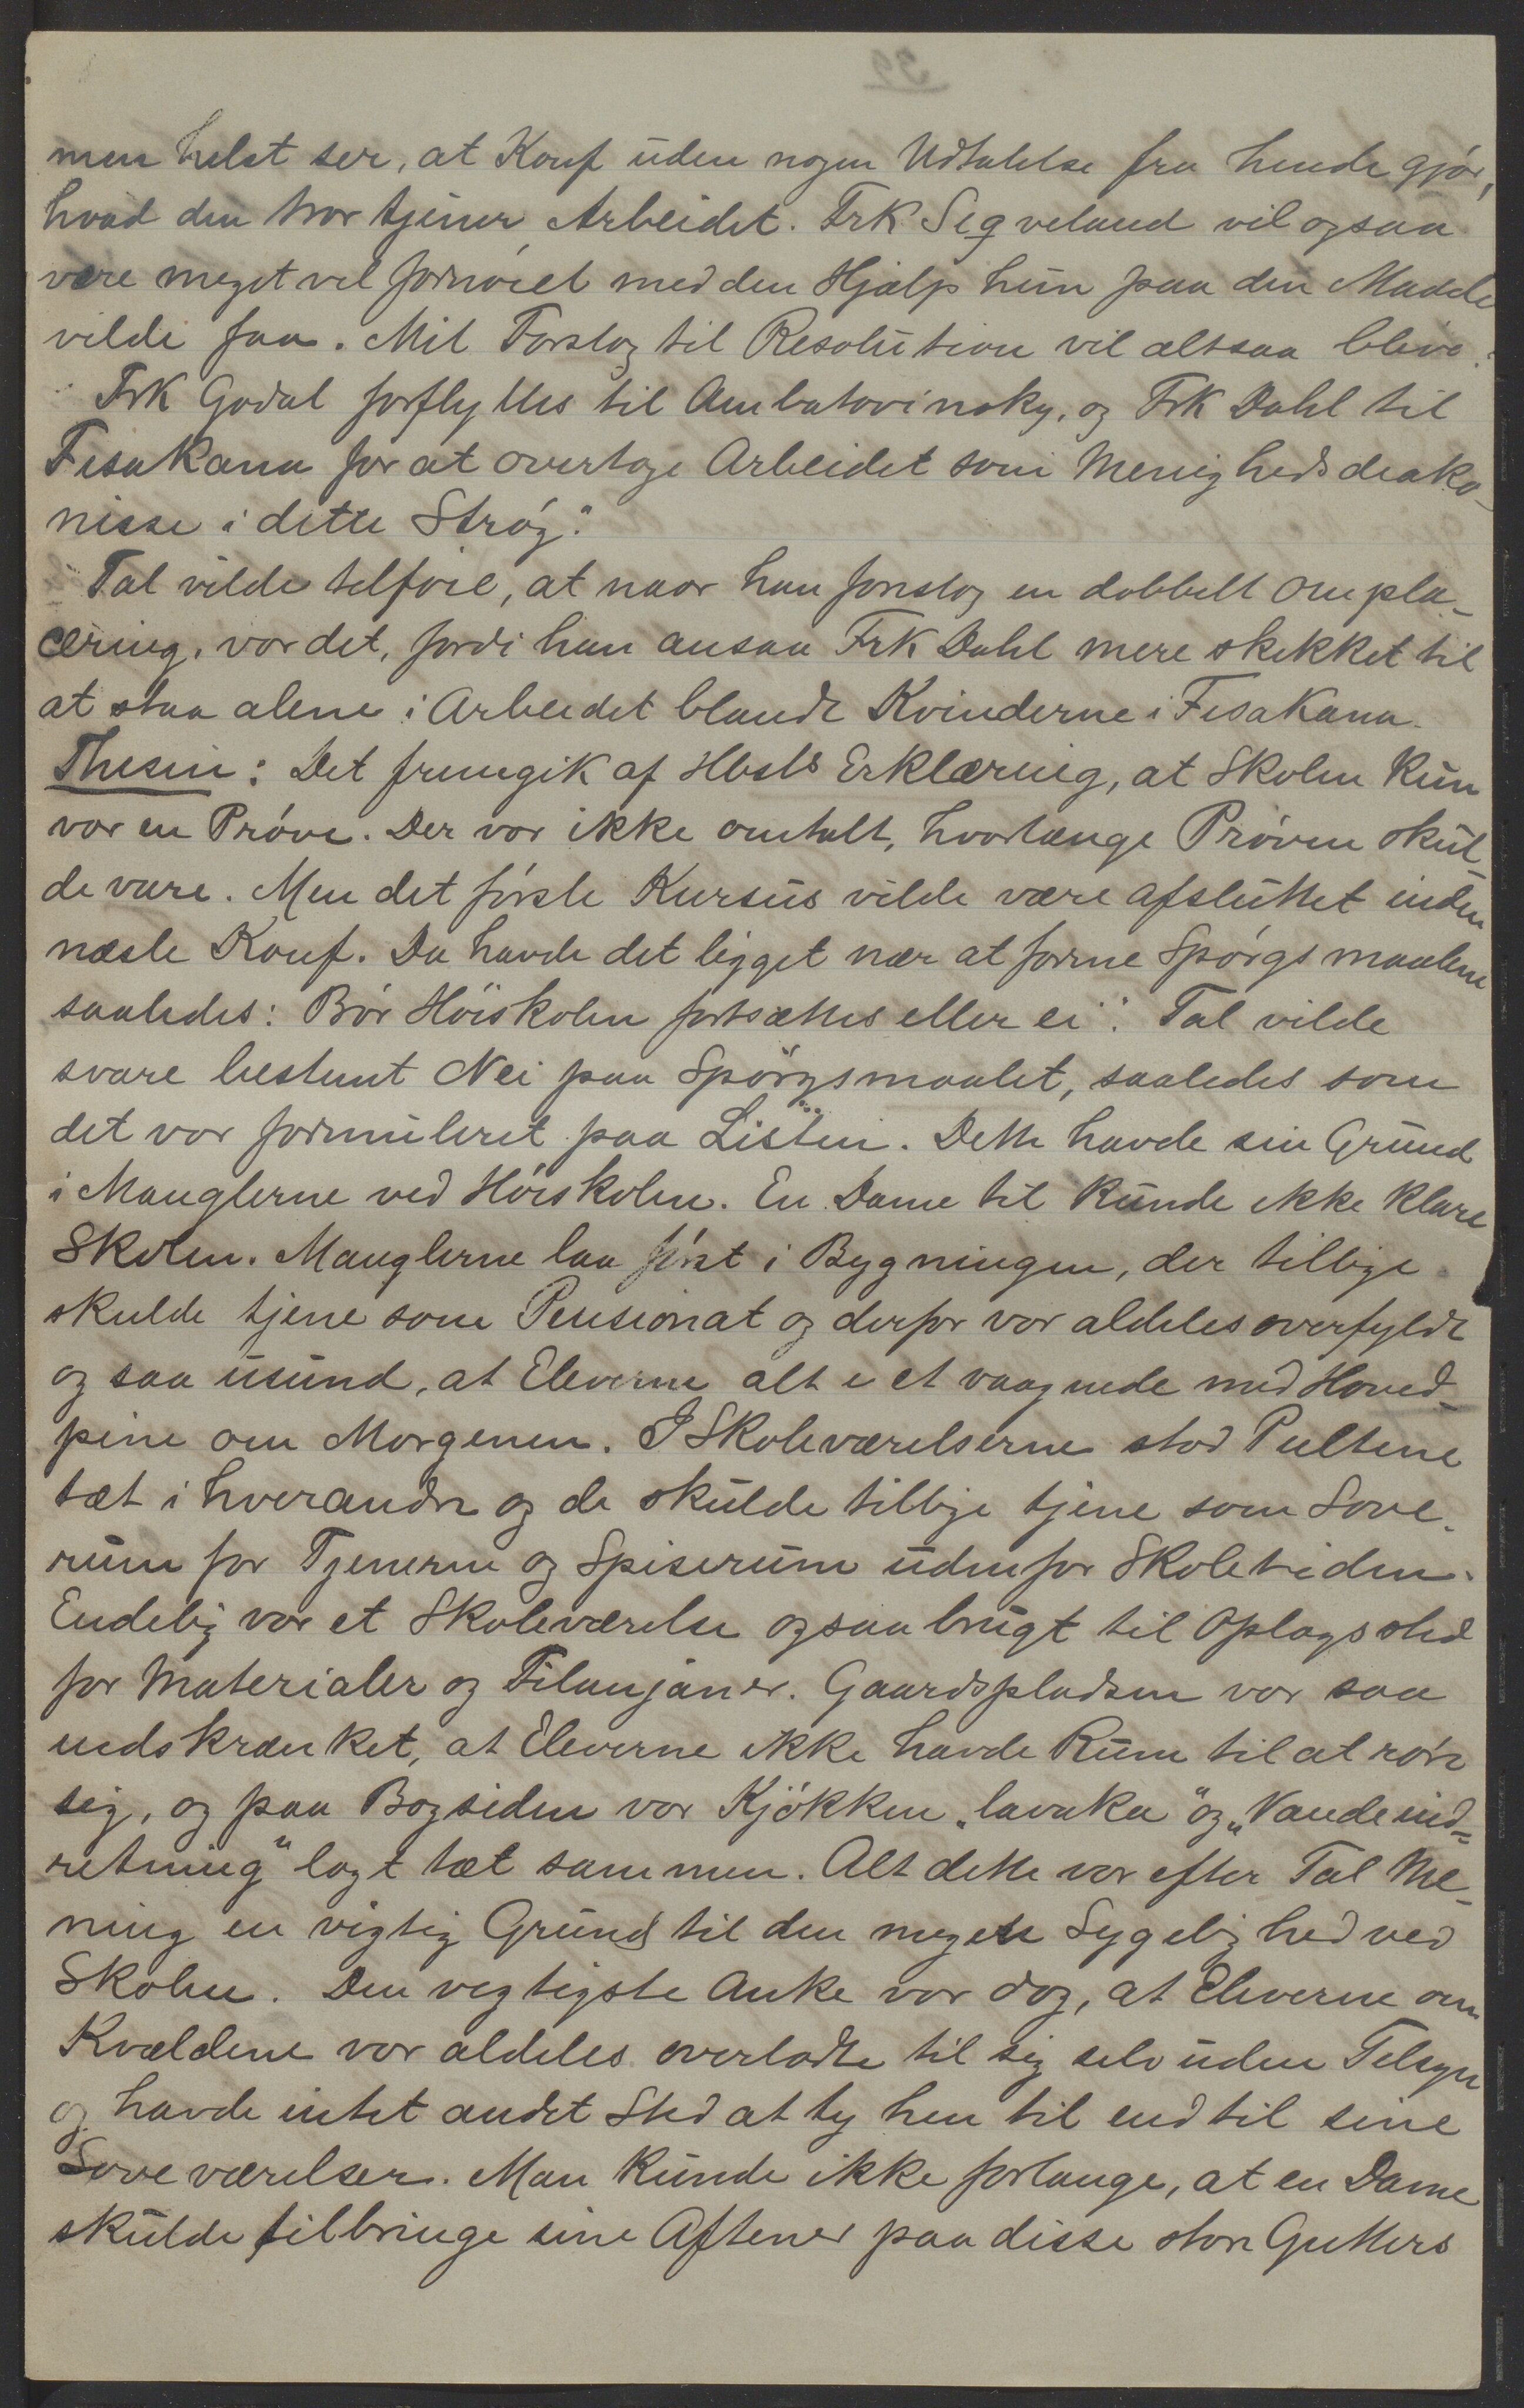 men helst ser, at Konf uden nogen Udtalelse fra hende gjør,
hvad den tror tjener Arbeidet. Frk Seqveland vil ogsaa
være meget vel fornøiet med den Hjælp hun paa den Maade
vilde faa. Mit Forslag til Resolution vil altsaa blive:
"Frk Godal forflyttes til Ambatovinaky, og Frk Dahl til
Fisakana for at overtage Arbeidet som Menighedsdiako-
nisse i dette Strøg."
Tal vilde tilføie, at naar han foreslog en dobbelt Ompla-
cering, var det, fordi han ansaa Frk Dahl mere skikket til
at staa alene i Arbeidet blandt Kvinderne i Fisakana.
Thesen: Det fremgik af Hbsts Erklæring, at Skolen kun
var en Prøve. Der var ikke omtalt, hvorlænge Prøven skul-
de vare. Men det første Kursus vilde være afsluttet inden
næste Konf. Da havde det ligget nær at forme Spørgsmaalene
saaledes: Bør Høiskolen fortsættes eller ei". Tal vilde
svare bestemt Nei paa Spørgsmaalet, saaledes som
det var formuleret paa Listen. Dette havde sin Grund
i Manglerne ved Høiskolen. En Dame til kunde ikke klare
Skolen. Manglerne laa først i Bygningen, der tillige
skulde tjene som Pensionat og derfor var aldeles overfyldt
og saa usund, at Eleverne alt i et vaagnede med Hoved-
pine om Morgenen. I Skoleværelserne stod Pultene
tæt i hverandre og de skulde tillige tjene som Sove-
rum for Tjenerne og Spiserum udenfor Skoletiden.
Endelig var et Skoleværelse ogsaa brugt til Oplagssted
for Materialer og Filanjaner. Gaardspladsen var saa
indskrænket, at Eleverne ikke havde Rum til at røre
sig, og paa Bagsiden var Kjøkken „lavaka" og „Vandeind-
retning" lagt tæt sammen. Alt dette var efter Tal Me-
ning en vigtig Grund til den megen Sygelighed ved
Skolen. Den vigtigste Anke var dog, at Eleverne om
Kvældene var aldeles overladte til sig selv uden Tilsyn
og havde intet andet Sted at ty hen til end til sine
Soveværelser. Man kunde ikke forlange, at en Dame
skulde tilbringe sine Aftener paa disse store Gutters